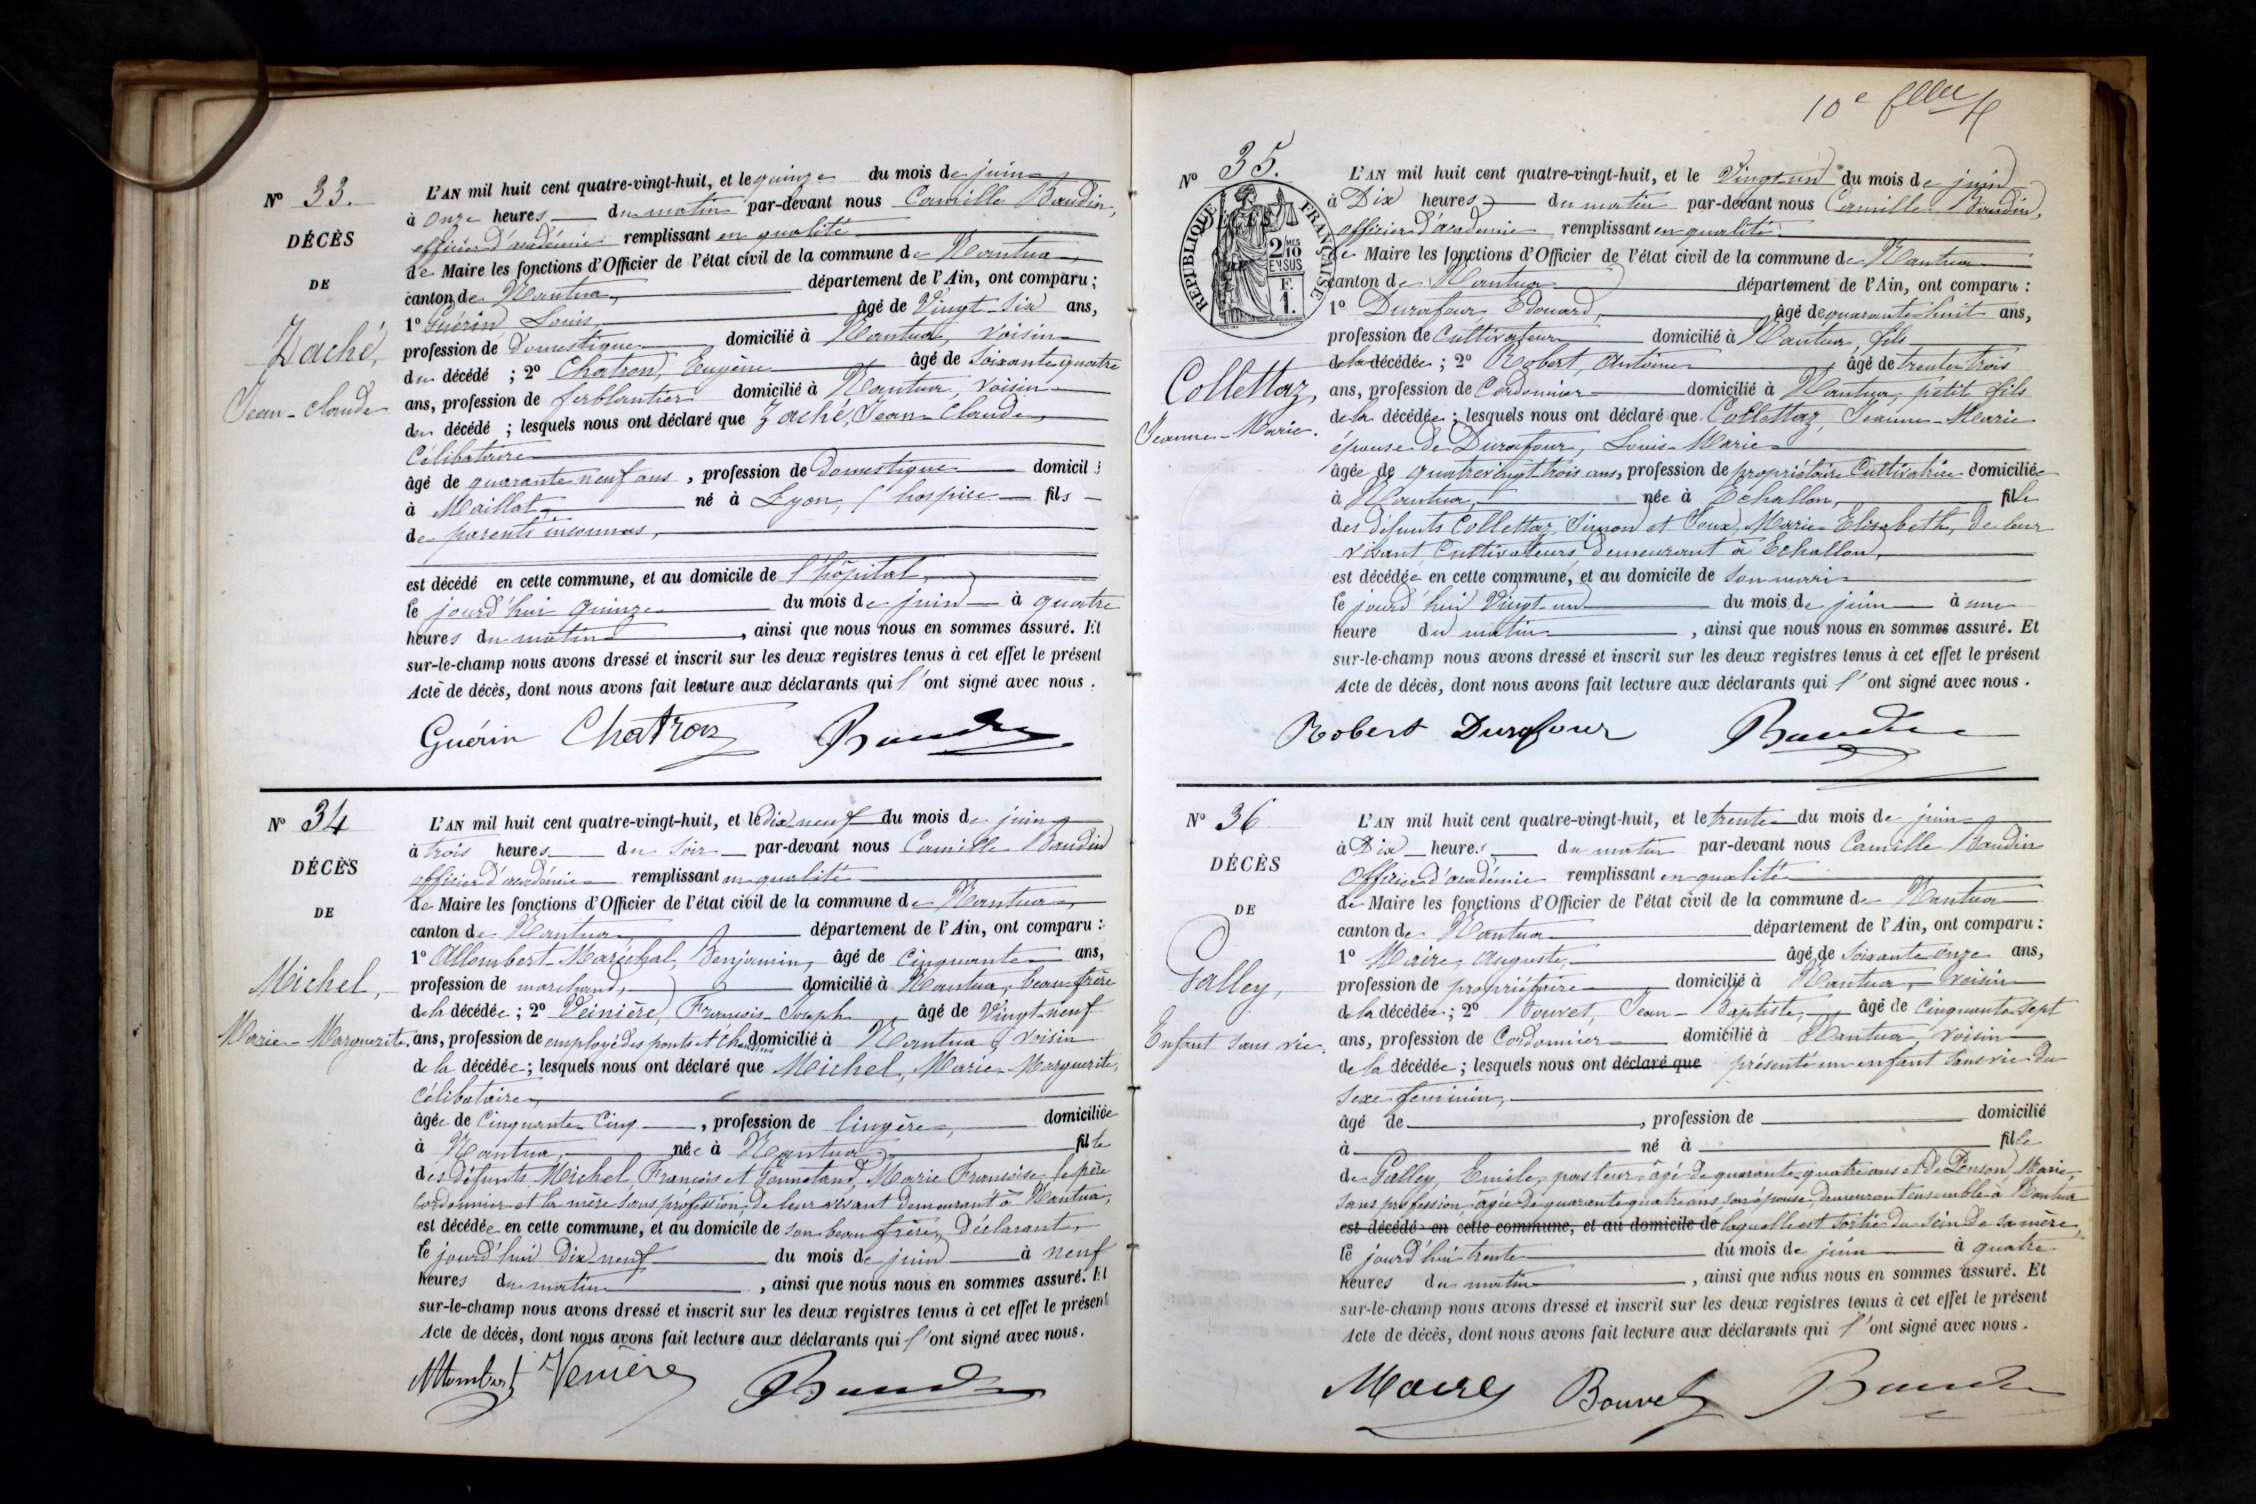 Nº 33.
DÉCÈS
DE
Zaché,
Jean-Claude
L'AN mil huit cent quatre-vingt-huit, et le quinze du mois de juin
à onze heures du matin par-devant nous Camille Baudin,
officier d'académie remplissant en qualité
de Maire les fonctions d'Officier de l'état civil de la commune de Nantua,
canton de Nantua, département de l'Ain, ont comparu :
1º Guérin Louis âgé de Vingt-six ans,
profession de Domestique domicilié à Nantua, voisin
du décédé ; 2º Chatron, Eugène âgé de soixante quatre
ans, profession de ferblantier domicilié à Nantua, voisin
du décédé ; lesquels nous ont déclaré que Zaché, Jean-Claude,
Célibataire
âgé de quarante neuf ans, profession de Domestique domicilié
à Maillat, né à Lyon, l'hospice fils
de parents inconnus,
est décédé en cette commune, et au domicile de l'hôpital,
le jourd'hui quinze du mois de juin à quatre
heures du matin, ainsi que nous nous en sommes assuré. Et
sur-le-champ nous avons dressé et inscrit sur les deux registres tenus à cet effet le présent
Acte de décès, dont nous avons fait lecture aux déclarants qui l'ont signé avec nous.
Guérin Chatron Baudin
Nº 34
DÉCÈS
DE
Michel,
Marie-Marguerite
L'AN mil huit cent quatre-vingt-huit, et le dix neuf du mois de juin
à trois heures du soir par-devant nous Camille Baudin
officier d'académie remplissant en qualité
de Maire les fonctions d'Officier de l'état civil de la commune de Nantua,
canton de Nantua département de l'Ain, ont comparu :
1º Allombert-Maréchal, Benjamin, âgé de cinquante ans,
profession de marchand, domicilié à Nantua, beau frère
de la décédée ; 2º Veinière, François-Joseph âgé de Vingt-neuf
ans, profession de employé des ponts et chaussées domicilié à Nantua, voisin
de la décédée ; lesquels nous ont déclaré que Michel, Marie-Marguerite,
Célibataire,
âgée de cinquante cinq, profession de lingère, domiciliée
à Nantua, née à Nantua fille
des défunts Michel, François et Marie Françoise, le père
cordonnier et la mère sans profession, de leur vivant demeurant à Nantua,
est décédée en cette commune, et au domicile de son beau frère, Déclarant,
le jourd'hui dix neuf du mois de juin à neuf
heures du matin, ainsi que nous nous en sommes assuré. Et
sur-le-champ nous avons dressé et inscrit sur les deux registres tenus à cet effet le présent
Acte de décès, dont nous avons fait lecture aux déclarants qui l'ont signé avec nous.
Allombert Venière Baudin
10e
Nº 35.
RÉPUBLIQUE FRANÇAISE
2 MES
10
EN SUS
F.
1.
Collettaz,
Jeanne-Marie.
L'AN mil huit cent quatre-vingt-huit, et le Vingt-un du mois de juin
à Dix heures du matin par-devant nous Camille Baudin,
officier d'académie remplissant en qualité
de Maire les fonctions d'Officier de l'état civil de la commune de Nantua
canton de Nantua département de l'Ain, ont comparu :
1º Durafour, Edouard, âgé de quarante huit ans,
profession de Cultivateur domicilié à Nantua, fils
de la décédée ; 2º Robert, Antoine âgé de trente trois
ans, profession de Cordonnier domicilié à Nantua, petit fils
de la décédée ; lesquels nous ont déclaré que Collettaz, Jeanne-Marie
épouse de Durafour, Louis-Marie
âgée de quatrevingt trois ans, profession de propriétaire Cultivatrice domiciliée
à Nantua, née à Echallon, fille
des défunts Collettaz, Simon et Joux, Marie-Elisabeth, de leur
vivant Cultivateurs demeurant à Echallon,
est décédée en cette commune, et au domicile de son mari
le jourd'hui Vingt-un du mois de juin à une
heure du matin, ainsi que nous nous en sommes assuré. Et
sur-le-champ nous avons dressé et inscrit sur les deux registres tenus à cet effet le présent
Acte de décès, dont nous avons fait lecture aux déclarants qui l'ont signé avec nous.
Robert Durafour Baudin
Nº 36
DÉCÈS
DE
Galley,
Enfant sans vie.
L'AN mil huit cent quatre-vingt-huit, et le trente du mois de juin
à Dix heures, du matin par-devant nous Camille Baudin
Officier d'académie remplissant en qualité
de Maire les fonctions d'Officier de l'état civil de la commune de Nantua
canton de Nantua département de l'Ain, ont comparu :
1º Maire, Auguste, âgé de soixante onze ans,
profession de propriétaire domicilié à Nantua, voisin
de la décédée ; 2º Bouvet, Jean-Baptiste, âgé de cinquante sept
ans, profession de Cordonnier domicilié à Nantua, voisin
de la décédée ; lesquels nous ont déclaré que présenté un enfant sans vie du
sexe féminin,
âgé de , profession de domicilié
à né à fille
de Galley, Emile, pasteur, âgé de quarante quatre ans et de Penson, Marie,
sans profession, âgée de quarante quatre ans, son épouse, demeurant ensemble à Nantua
est décédé en cette commune, et au domicile de laquelle est sortie du sein de sa mère,
le jourd'hui trente du mois de juin à quatre
heures du matin, ainsi que nous nous en sommes assuré. Et
sur-le-champ nous avons dressé et inscrit sur les deux registres tenus à cet effet le présent
Acte de décès, dont nous avons fait lecture aux déclarants qui l'ont signé avec nous.
Maire Bouvet Baudin